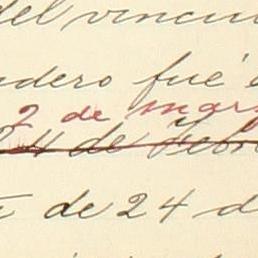 del vincu
dero fué e
7 de mar
24 de Febr
de 24 d